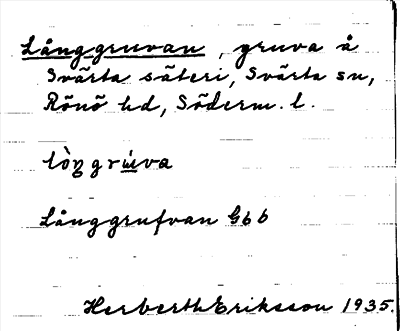 Långgruvan, gruva å
Svärta säteri, Svärta sn,
Rönö hd, Söderm. l.
lòŋgrúva
Långgrufvan Gbb
Herberth Eriksson 1935.